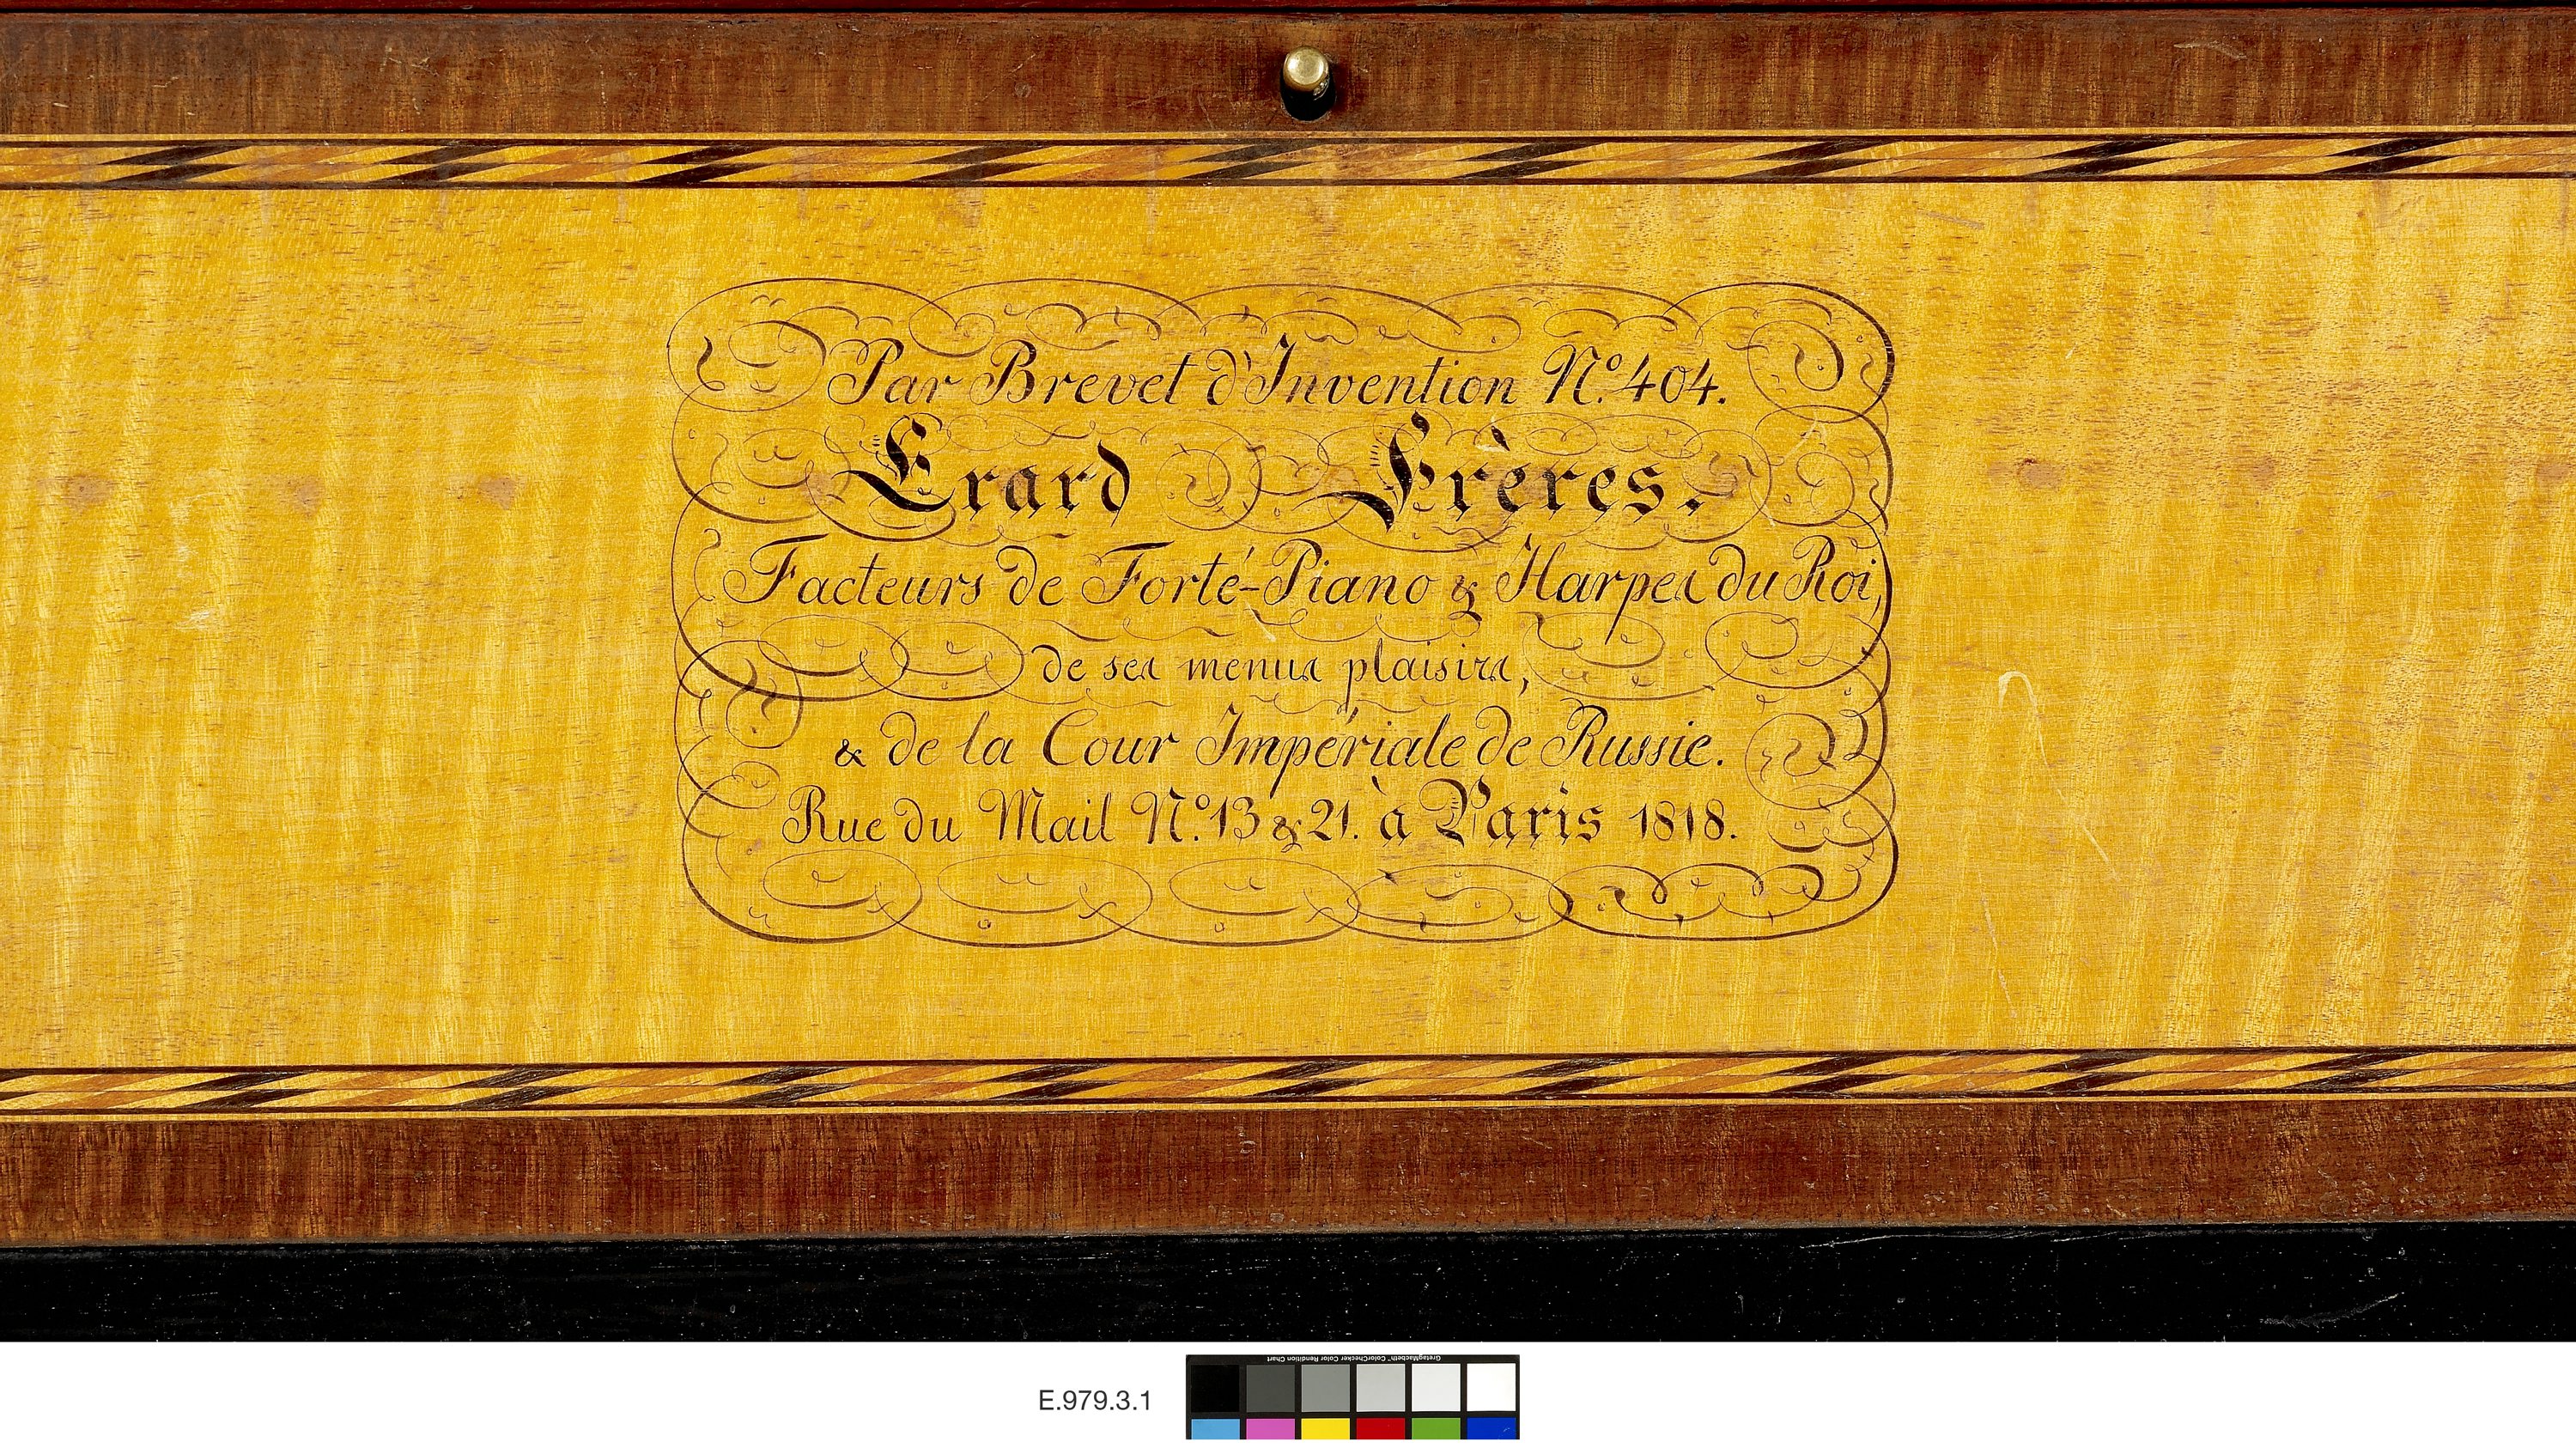 Par Brevet d'Invention N.º 404.
Erard Frères.
Facteurs de Forté-Piano & Harpes du Roi,
de ses menus plaisirs,
& de la Cour Impériale de Russie.
Rue du Mail N.º 13 & 21. à Paris 1818.
GretagMacbeth™ ColorChecker Color Rendition Chart
E.979.3.1